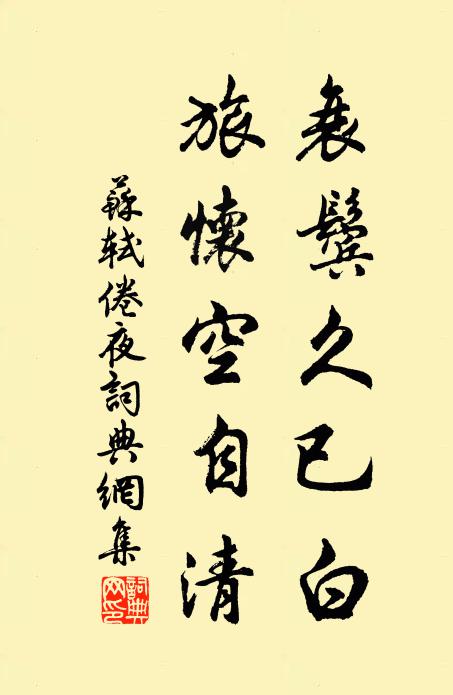 衰鬓久已白
旅懷空自清
蘇軾倦夜詞典網集
詞典网印